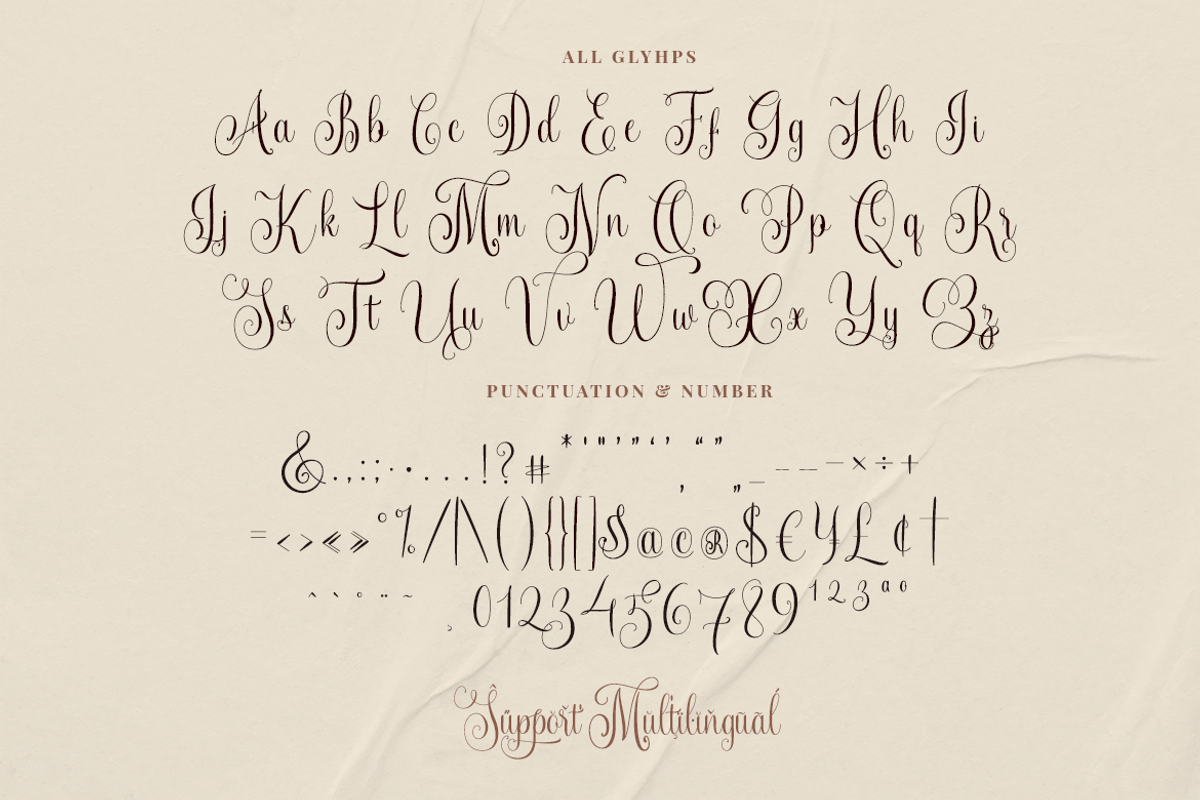 ALL GLYHPS
Aa Bb Cc Dd Ee Ff Gg Hh Ii
Jj Kk Ll Mm Nn Oo Pp Qq Rr
Ss Tt Uu Vv Ww Xx Yy Zz
PUNCTUATION & NUMBER
& . , : ; · • . . . ! ? # * ' " ’ ” ‘ ’ ‚ “ ” „ _ – — - × ÷ +
= < > « » ° % / | \ ( ) { } [ ] § @ © ® $ € ¥ £ ¢ †
^ ` ° ¨ ~ ¸ 0 1 2 3 4 5 6 7 8 9 ¹ ² ³ ª º
Ŝűppořť Mŭlţïlïňgūãĺ